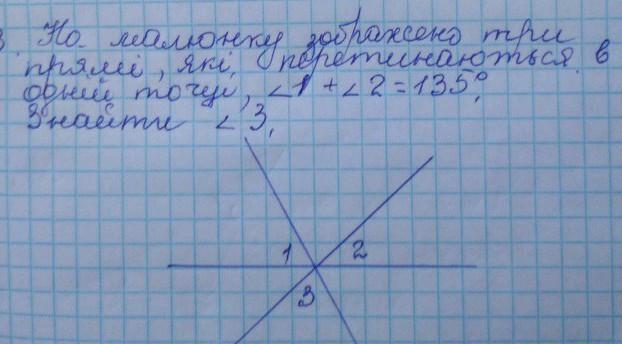 3. На малюнку зображено три
прямі, які перетинаються в
одній точці, ∠1 + ∠2 = 135°.
Знайти ∠3.
1 2
3